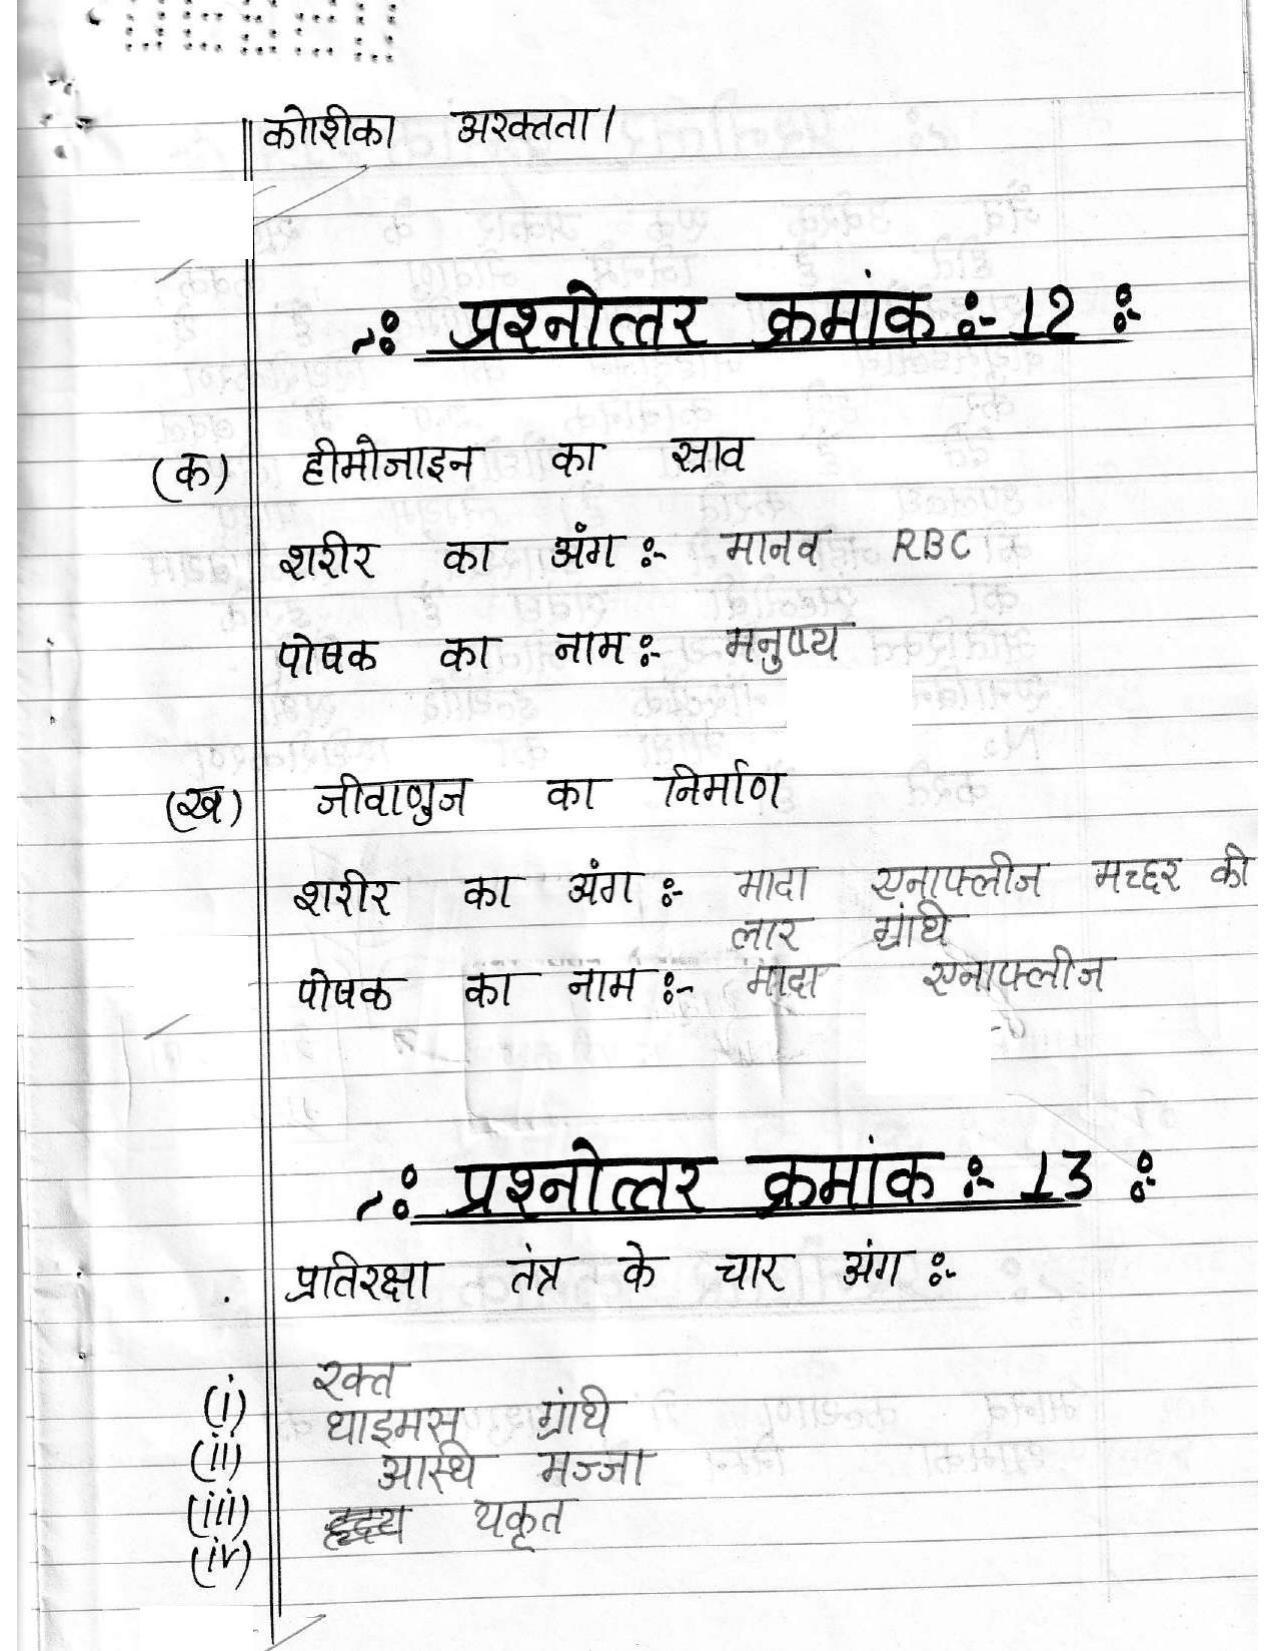 कोशिका अरक्तता।
-: प्रश्नोत्तर क्रमांक :- 12 :-
(क) हीमोजाइन का स्राव
शरीर का अंग :- मानव RBC
पोषक का नाम :- मनुष्य
(ख) जीवाणुज का निर्माण
शरीर का अंग :- मादा एनाफ्लीज मच्छर की
लार ग्रंथि
पोषक का नाम :- मादा एनाफ्लीज
-: प्रश्नोत्तर क्रमांक :- 13 :-
प्रतिरक्षा तंत्र के चार अंग :-
(i) रक्त
(ii) थाइमस ग्रंथि
(iii) अस्थि मज्जा
(iv) यकृत